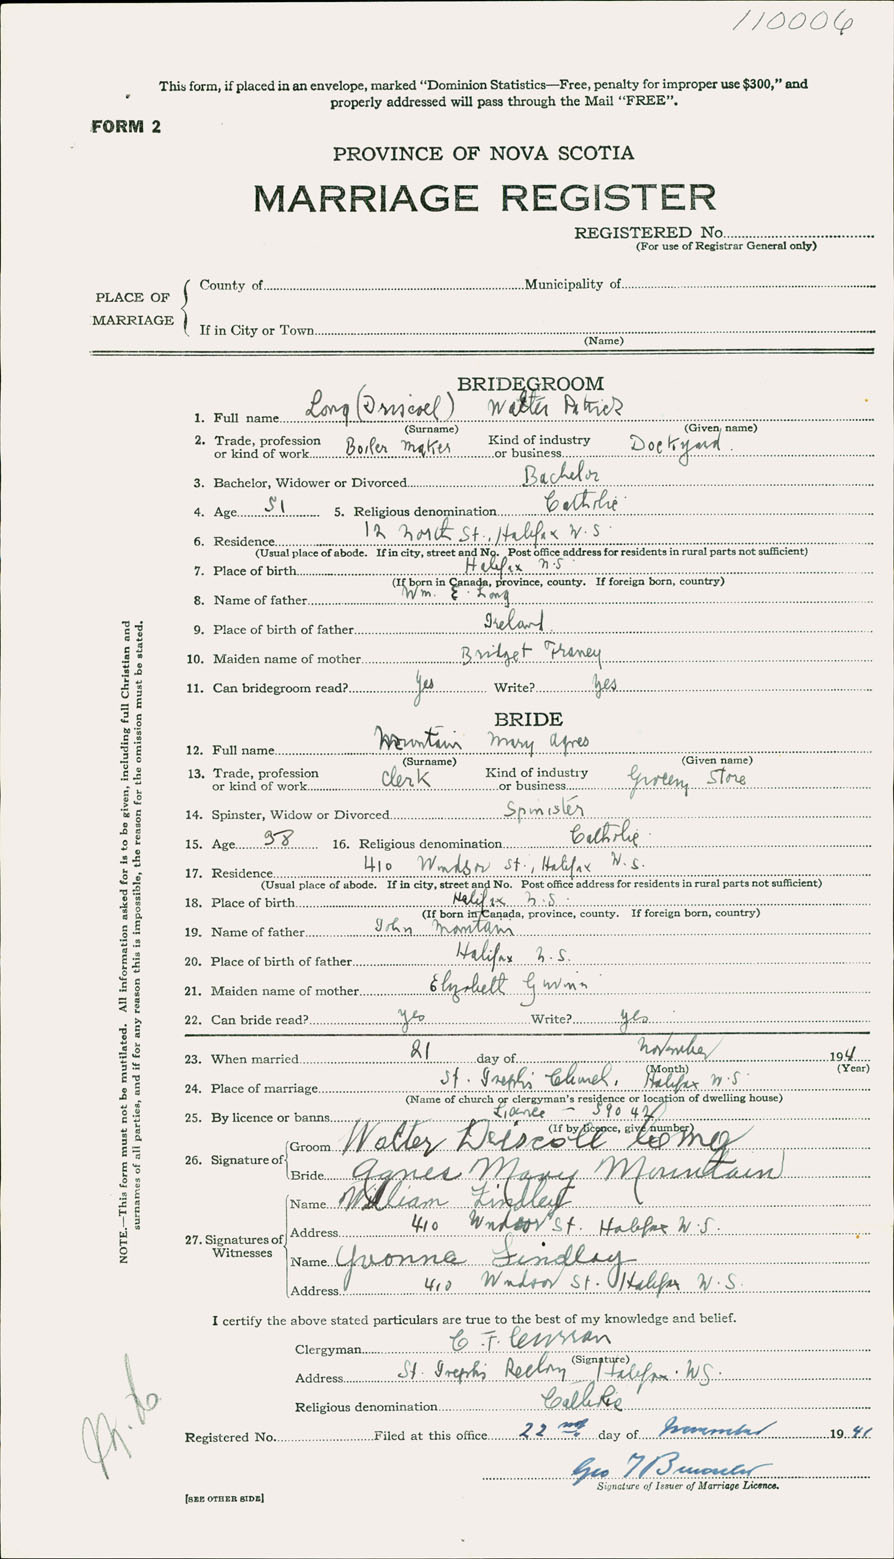 110006
This form, if placed in an envelope, marked “Dominion Statistics—Free, penalty for improper use $300,” and
properly addressed will pass through the Mail “FREE”.
FORM 2
PROVINCE OF NOVA SCOTIA
MARRIAGE REGISTER
REGISTERED No.
(For use of Registrar General only)
PLACE OF MARRIAGE
County of Municipality of
If in City or Town
(Name)
BRIDEGROOM
1. Full name Long (Driscoll) Walter Patrick
(Surname) (Given name)
2. Trade, profession or kind of work Boiler maker Kind of industry or business Dockyard.
3. Bachelor, Widower or Divorced Bachelor
4. Age 51 5. Religious denomination Catholic
6. Residence 12 North St., Halifax N.S.
(Usual place of abode. If in city, street and No. Post office address for residents in rural parts not sufficient)
7. Place of birth Halifax N.S.
(If born in Canada, province, county. If foreign born, country)
8. Name of father Wm. E. Long
9. Place of birth of father Ireland
10. Maiden name of mother Bridget Franey
11. Can bridegroom read? Yes Write? Yes
BRIDE
12. Full name Mountain Mary Agnes
(Surname) (Given name)
13. Trade, profession or kind of work Clerk Kind of industry or business Grocery Store
14. Spinster, Widow or Divorced Spinister
15. Age 38 16. Religious denomination Catholic
17. Residence 410 Windsor St., Halifax N.S.
(Usual place of abode. If in city, street and No. Post office address for residents in rural parts not sufficient)
18. Place of birth Halifax N.S.
(If born in Canada, province, county. If foreign born, country)
19. Name of father John Mountain
20. Place of birth of father Halifax N.S.
21. Maiden name of mother Elizabeth
22. Can bride read? yes Write? yes
23. When married 21 day of November 1941
(Month) (Year)
24. Place of marriage St. Joseph's Church, Halifax N.S.
(Name of church or clergyman's residence or location of dwelling house)
25. By licence or banns Licence - 59042
(If by licence, give number)
26. Signature of
Groom Walter Driscoll Long
Bride Agnes Mary Mountain
27. Signatures of Witnesses
Name William Findley
Address 410 Windsor St. Halifax N.S.
Name Yvonne Findlay
Address 410 Windsor St. Halifax N.S.
I certify the above stated particulars are true to the best of my knowledge and belief.
Clergyman C. F. Curran
(Signature)
Address St. Joseph's Rectory Halifax. N.S.
Religious denomination Catholic
Registered No. Filed at this office 22nd day of November 1941
Geo
Signature of Issuer of Marriage Licence.
[SEE OTHER SIDE]
NOTE.—This form must not be mutilated. All information asked for is to be given, including full Christian and
surnames of all parties, and if for any reason this is impossible, the reason for the omission must be stated.